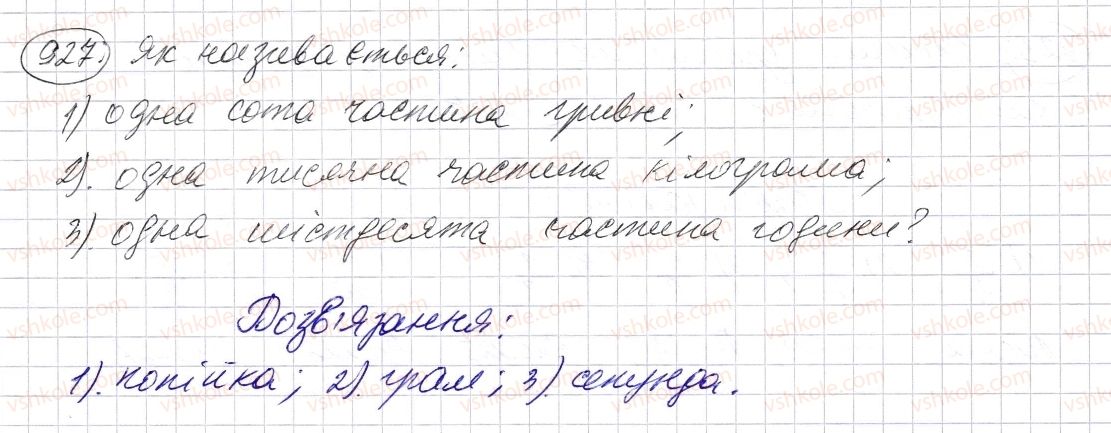 927. Як називається:
1) одна сота частина гривні;
2). одна тисячна частина кілограма;
3). одна шістдесята частина години?
Розв'язання:
1). копійка; 2). грам; 3). секунда.